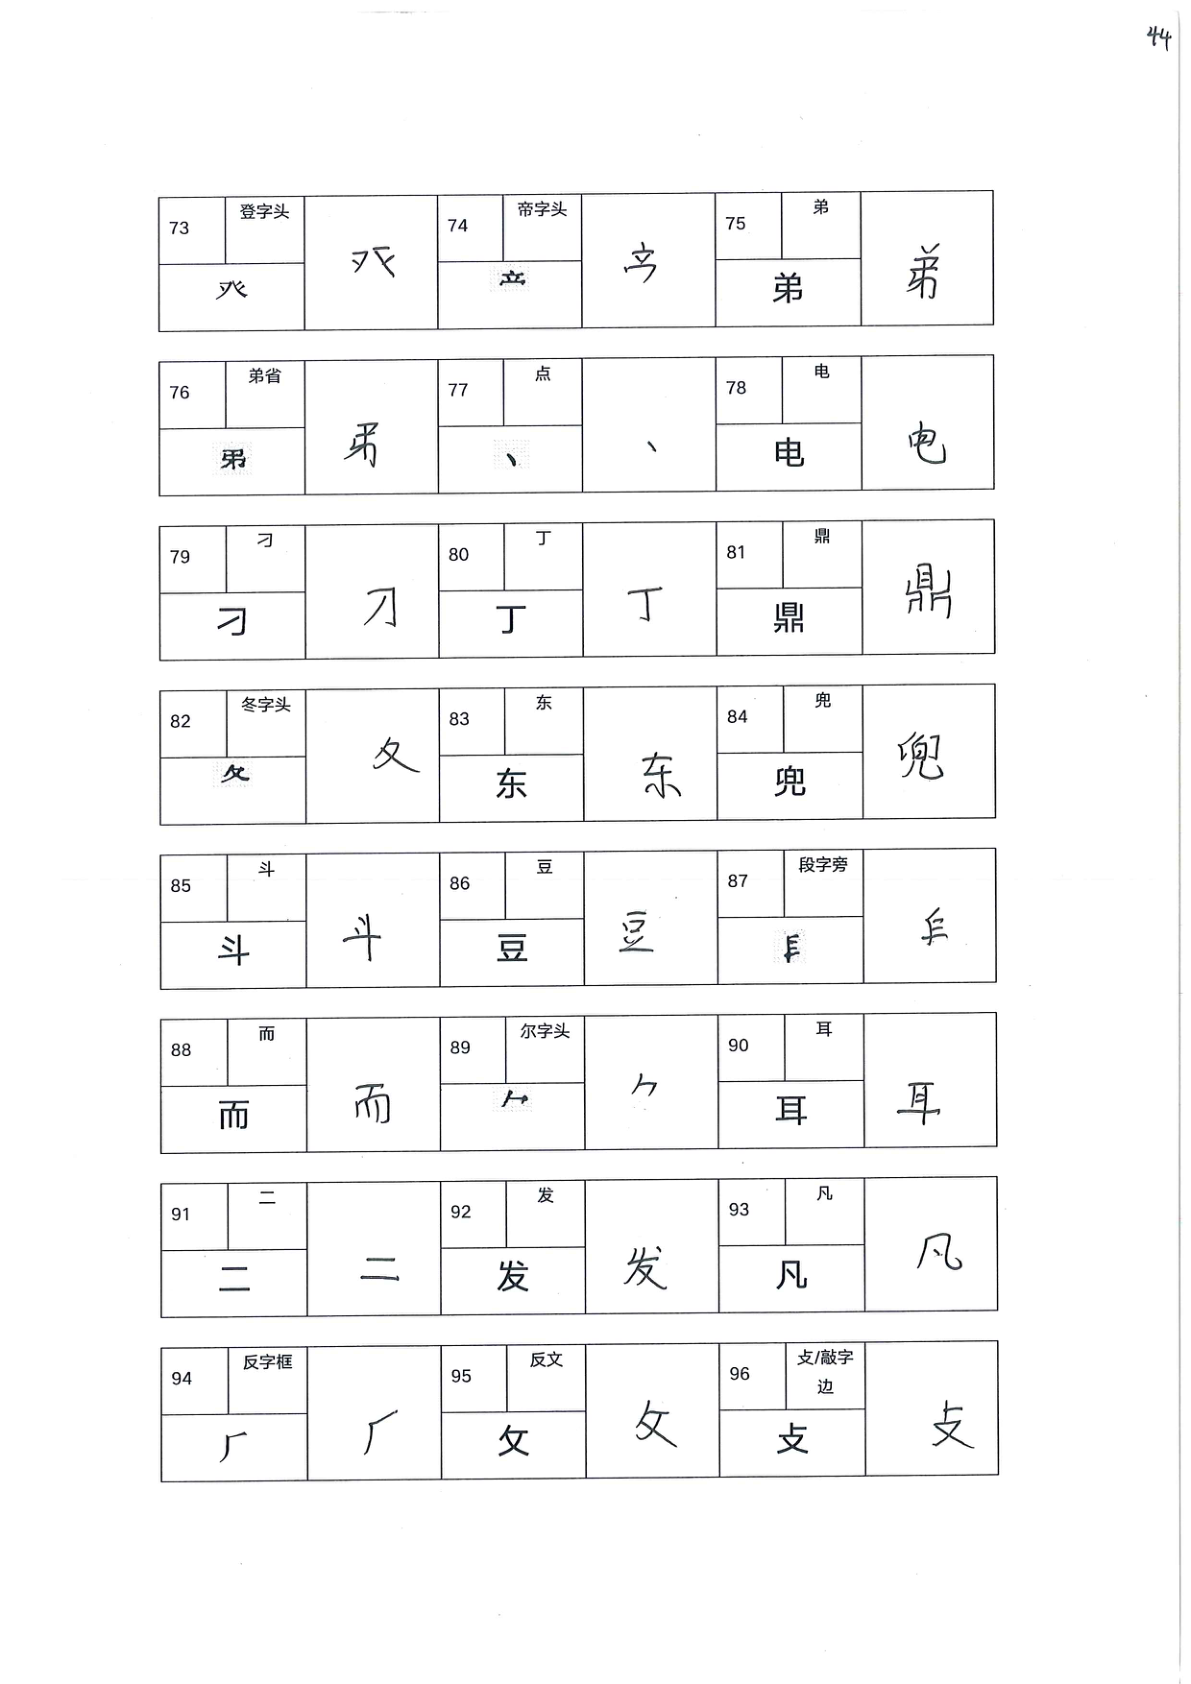 44
73 登字头 癶 癶 74 帝字头 75 弟 弟 弟
76 弟省 77 点 丶 丶 78 电 电 电
79 刁 刁 刁 80 丁 丁 丁 81 鼎 鼎 鼎
82 冬字头 夂 夂 83 东 东 东 84 兜 兜 兜
85 斗 斗 斗 86 豆 豆 豆 87 段字旁
88 而 而 而 89 尔字头 𠂊 𠂊 90 耳 耳 耳
91 二 二 二 92 发 发 发 93 凡 凡 凡
94 反字框 𠂆 𠂆 95 反文 攵 攵 96 攴/敲字边 攴 攴